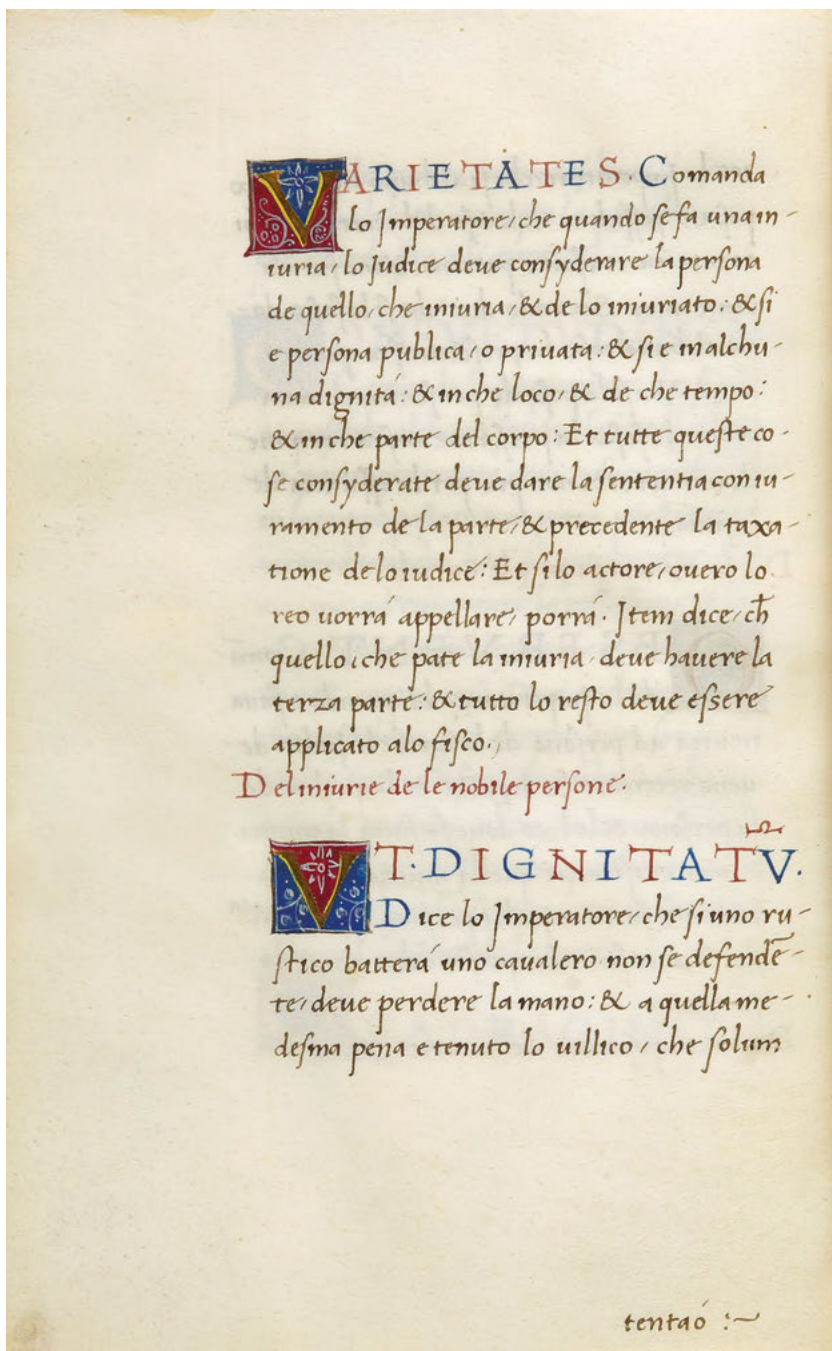 VARIETATES. Comanda
lo Imperatore/ che quando se fa una in-
iuria/ lo Iudice deve consyderare la persona
de quello/ che iniuria/ & de lo iniuriato: & si
e persona publica/ o priuata: & si e in alchu-
na dignitá: & in che loco/ & de che tempo:
& in che parte del corpo: Et tutte queste co-
se consyderate deue dare la sententia con iu-
ramento de la parte/ & precedente la taxa-
tione de lo iudice: Et si lo actore/ ouero lo
reo uorrá appellare/ porrá. Item dice/ ch̄
quello/ che pate la iniuria/ deue hauere la
terza parte: & tutto lo resto deve essere
applicato a lo fisco.
Del iniurie de le nobile persone.
VT. DIGNITATŪ.
Dice lo Imperatore/ che si uno ru-
stico batterá uno caualero non se defendē-
te/ deue perdere la mano: & a quella me-
desma pena e tenuto lo uillico/ che solum
tentaó :~